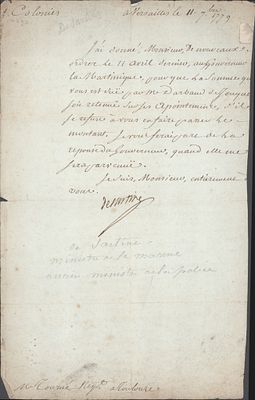 Colonies
a Versailles le 11 7bre 1779
J'ai donné, Monsieur, De nouveaux
ordres le 11 avril dernier, au Gouverneur
la Martinique, pour que la somme qui
vous est düe par M. Darbaud de Jouques
soit retenüe sur ses Apointements, s'il
se refuse a vous en faire passer le
montant. Je vous ferai part de la
reponse du Gouverneur, quand elle me
sera parvenüe.
Je suis, Monsieur, entierement a
vous.
desartine
de Sartine
ministre de la marine
ancien ministre de la police
Mr Tournié Negt a Toulouse.